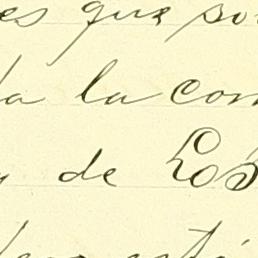 es que so
da la con
y de Los
está